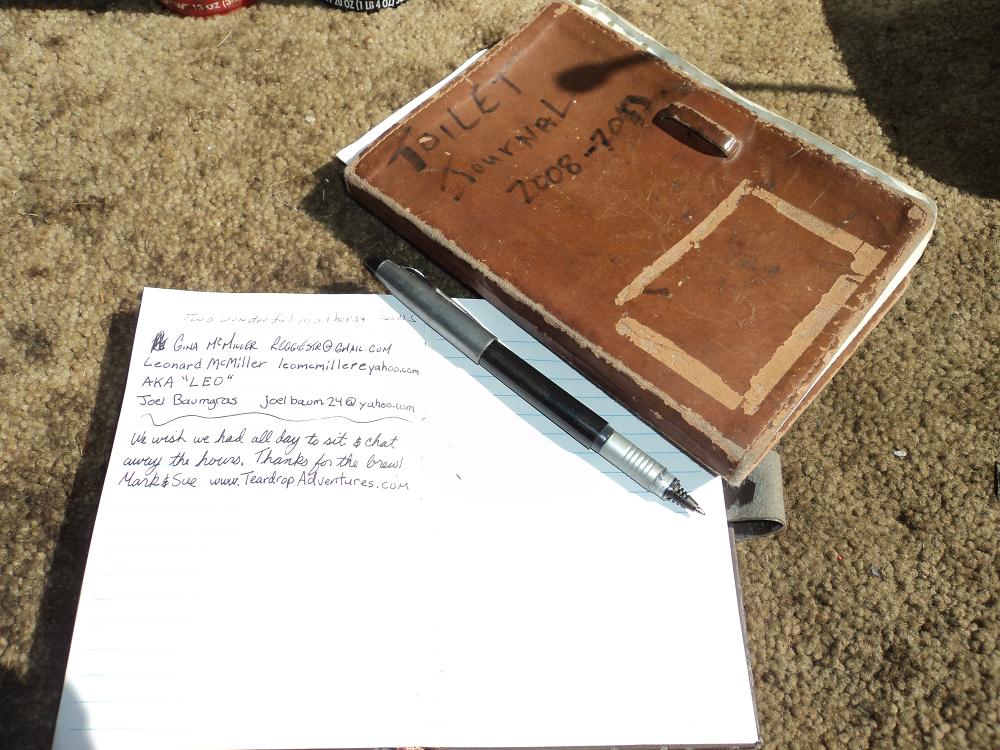 WT 13 OZ (3
20 OZ (1 LB 4 OZ)
TOILET
JOURNAL
2008-2011
Two wonderful mothers + sons
GINA MCMILLER REGGIESIR@GMAIL.COM
Leonard McMiller leomcmiller@yahoo.com
AKA "LEO"
Joel Baumgras joelbaum24@yahoo.com
We wish we had all day to sit & chat
away the hours. Thanks for the brew!
Mark & Sue www.TeardropAdventures.com